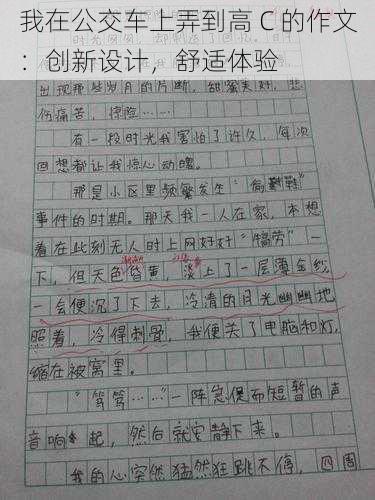 我在公交车上弄到高 C 的作文
：创新设计，舒适体验
出现那些岁月的片断，甜蜜美好，悲
伤痛苦，惊险……
有一段时光我害怕了许久，每次
回想都让我惊心动魄。
那是小区里频繁发生“偷鞋鞋”
事件的时期。那天我一人在家，本想
着在此刻无人时上网好好“犒劳”一
下，但天色昏黄，淡上了一层薄金纱，
一会便沉了下去，冷清的月光幽幽地
照着，冷得刺骨，我便关了电脑和灯，
缩在被窝里。
“笃笃……”一阵急促而短暂的声
音响起，然后就安静下来。
我的心突然猛然狂跳不停，四周